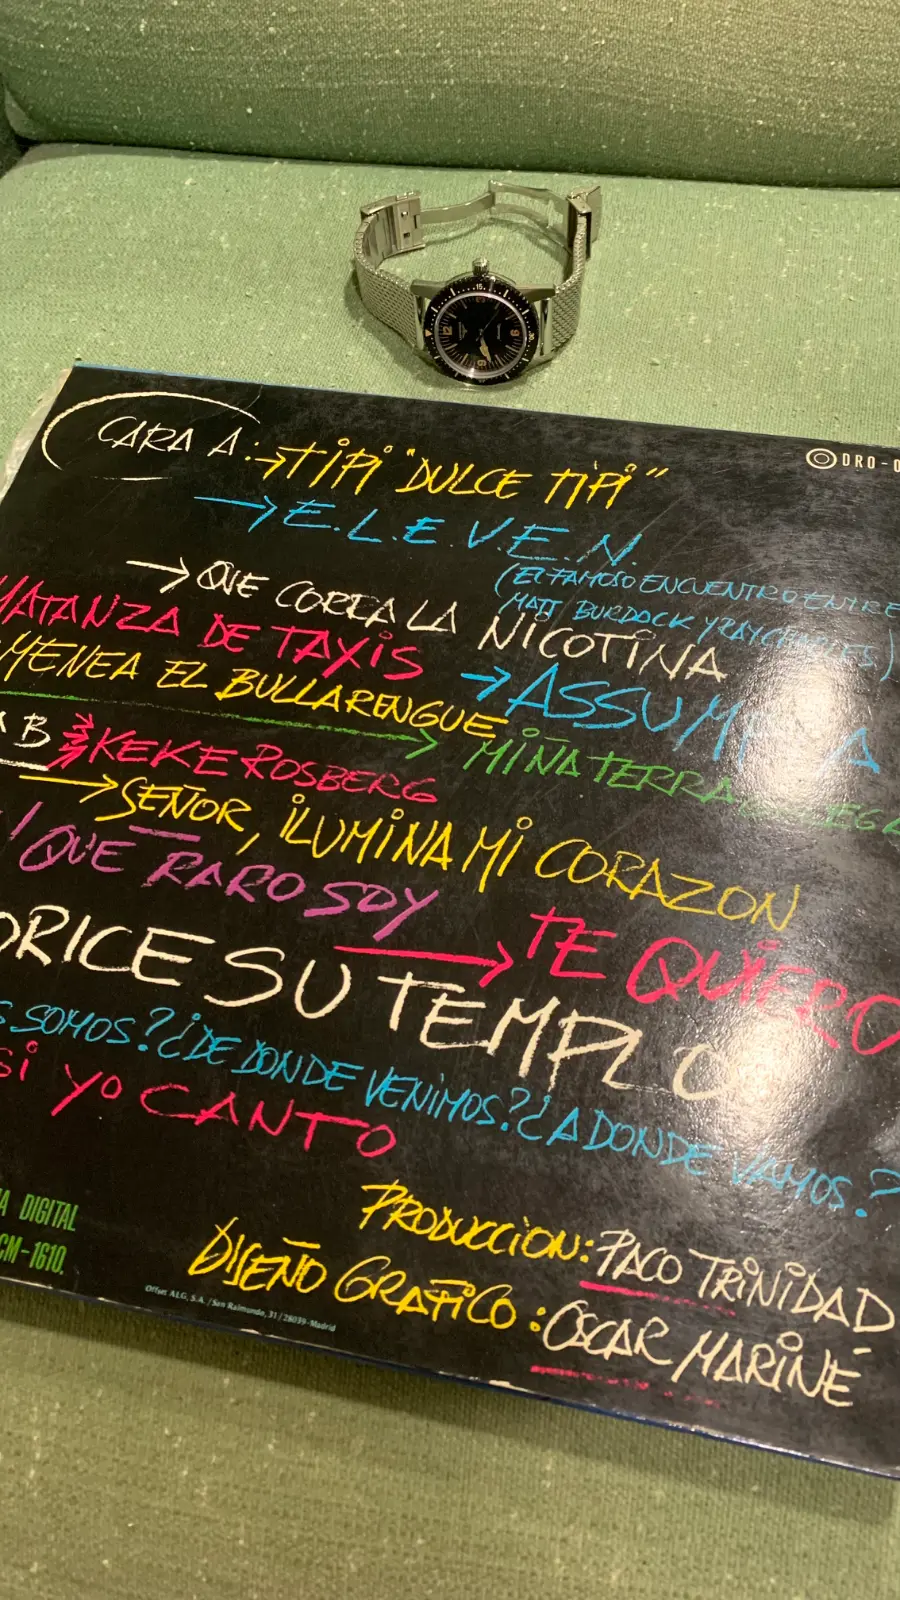 CARA A: → TIPI "DULCE TIPI"
DRO-0
→ E.L.E.V.E.N.
(EL FAMOSO ENCUENTRO ENTRE
MATT BURDOCK Y RAY CHARLES)
→ QUE CORRA LA NICOTINA
MATANZA DE TAXIS
→ ASSUMPTA
MENEA EL BULLARENGUE
→ MIÑA TERRA GALEGA
B KEKE ROSBERG
→ SEÑOR, ILUMINA MI CORAZON
! QUE RARO SOY
→ TE QUIERO
ORICE SU TEMPLO
S SOMOS? ¿DE DONDE VENIMOS? ¿A DONDE VAMOS?
SI YO CANTO
A DIGITAL
CM-1610.
PRODUCCION: PACO TRINIDAD
DISEÑO GRAFICO: OSCAR MARINÉ
Offset ALG, S.A. / San Raimundo, 31 / 28039-Madrid